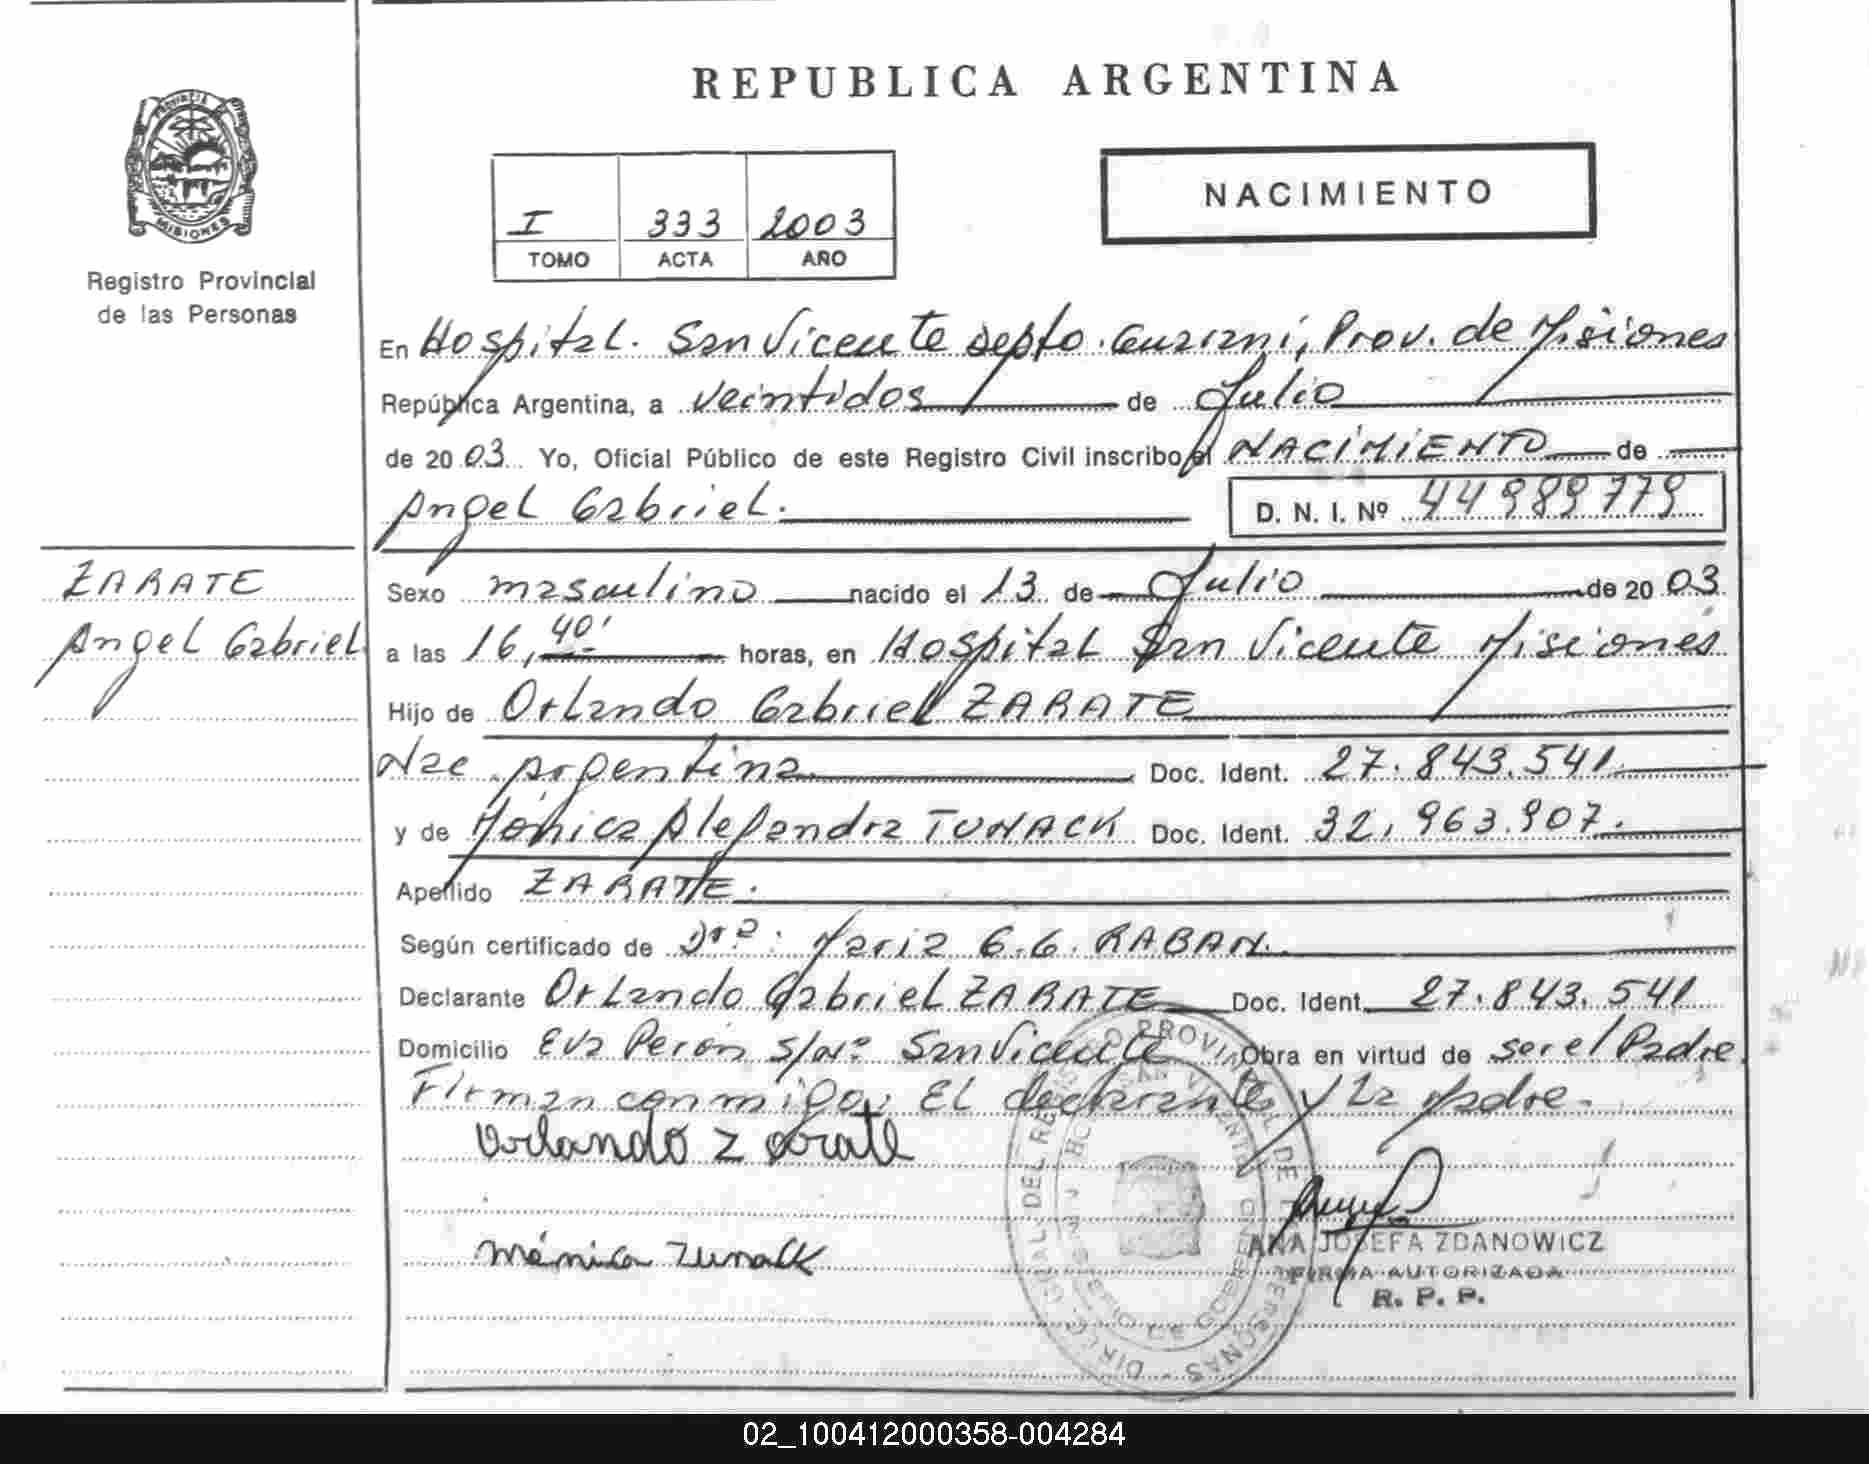 REPUBLICA ARGENTINA
PROVINCIA
MISIONES
Registro Provincial
de las Personas
I 333 2003
TOMO ACTA AÑO
NACIMIENTO
En Hospital. San Vicente Depto. Guarani, Prov. de Misiones
República Argentina, a veintidos de Julio
de 2003 Yo, Oficial Público de este Registro Civil inscribo el NACIMIENTO de
Angel Gabriel. D. N. I. Nº 44989779
ZARATE
Angel Gabriel
Sexo masculino nacido el 13 de Julio de 2003
a las 16,40' horas, en Hospital San Vicente Misiones
Hijo de Orlando Gabriel ZARATE
Nac. Argentina Doc. Ident. 27.843.541
y de Mónica Alejandra TUNACK Doc. Ident. 32.963.907.
Apellido ZARATE.
Según certificado de Dra: Maria G.G. RABAN.
Declarante Orlando Gabriel ZARATE Doc. Ident. 27.843.541
Domicilio Eva Perón s/nº San Vicente Obra en virtud de ser el Padre
Firman conmigo, El declarante y La Madre.
Orlando Zarate
Mónica Tunack
ANA JOSEFA ZDANOWICZ
FIRMA AUTORIZADA
R. P. P.
02_100412000358-004284